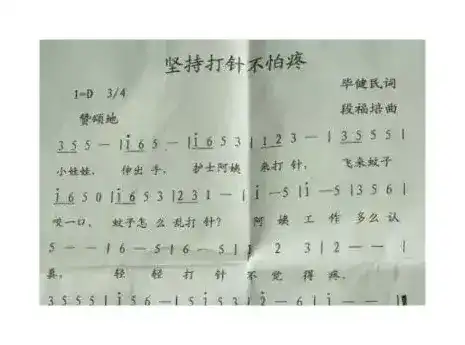 坚持打针不怕疼
1=D 3/4
毕健民词
赞颂地
段福培曲
3 5 5 — | i 6 5 — | i 6 5 3 | 1 2 3 — | 3 5 5 5 |
小娃娃, 伸出手, 护士阿姨 来打针, 飞来蚊子
i 6 5 0 | i 6 5 3 | 2 3 1 — | i — 5 | i — 5 | 3 5 6 |
叹一口, 蚊子怎么乱打针? 阿姨工作多么认
5 — — | 6 — 5 | 6 — 5 | 1 2 3 | 2 — — |
真, 轻轻打针不觉得疼.
3 5 5 5 | i 5 6 — | 5 i 5 3 | 2 — 6 | 1 — — ‖